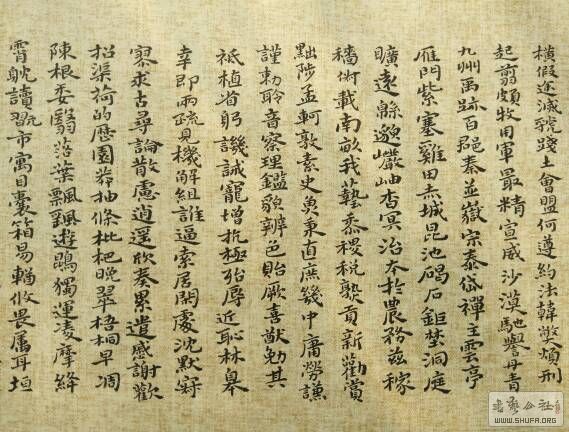 橫假途滅虢踐土會盟何遵約法韓弊煩刑
起翦頗牧用軍最精宣威沙漠馳譽丹青
九州禹跡百郡秦並嶽宗泰岱禪主雲亭
雁門紫塞雞田赤城昆池碣石鉅野洞庭
曠遠緜邈巖岫杳冥治本於農務茲稼
穡俶載南畝我藝黍稷稅熟貢新勸賞
黜陟孟軻敦素史魚秉直庶幾中庸勞謙
謹勅聆音察理鑑貌辨色貽厥嘉猷勉其
祗植省躬譏誡寵增抗極殆辱近恥林皋
幸即兩疏見機解組誰逼索居閒處沈默寂
寥求古尋論散慮逍遙欣奏累遣慼謝歡
招渠荷的歷園莽抽條枇杷晚翠梧桐早凋
陳根委翳落葉飄颻遊鵾獨運凌摩絳
霄耽讀翫市寓目囊箱易輶攸畏屬耳垣
WWW.SHUFA.ORG